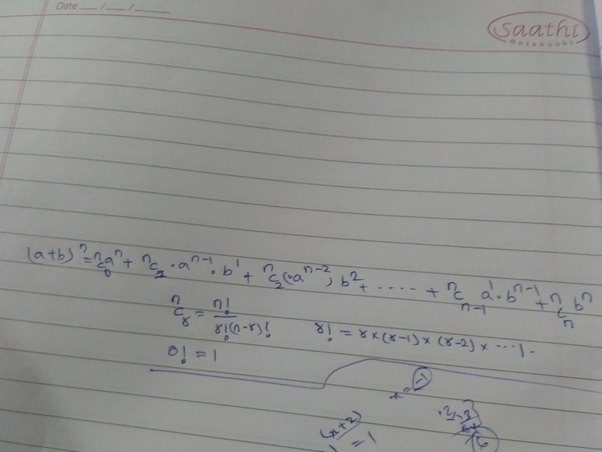 Date __/__/____
Saathi
Notebooks
(a+b)ⁿ = ⁿC₀aⁿ + ⁿC₂·aⁿ⁻¹·b¹ + ⁿC₂(·aⁿ⁻²) b² + ..... + ⁿCₙ₋₁ a¹·bⁿ⁻¹ + ⁿCₙ bⁿ
ⁿCᵣ = n!/r!(n-r)! r! = r×(r-1)×(r-2)×...1.
0! = 1
(x+2)
= 1